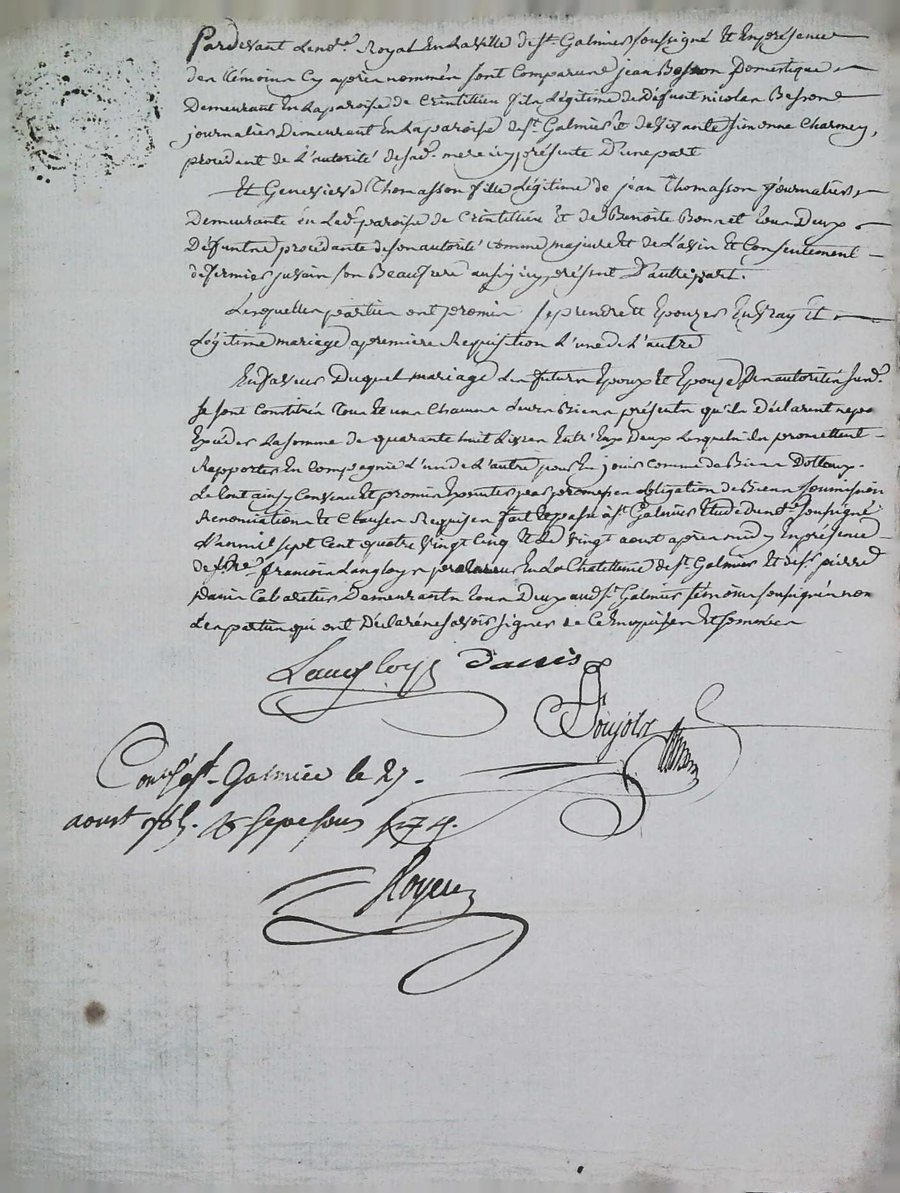 Pardevant Le no.re Royal En la ville de st. Galmier soussigné Et En presence
des témoins Cy apres nommés sont Comparus jean Besson Domestique
Demeurant En la paroisse de Crintillieu fils Légitime de Défunt nicolas Besson
journalier Demeurant En la paroisse de st. Galmier et de vivante simonne Charmey,
procédant de L'autorité de sad. mere icy présente D'une part
Et Genevieve Thomasson fille Légitime de jean Thomasson journalier
Demeurante en Lad. paroisse de Crintillieu Et de Benoite Bonnet tous Deux
Défunts procédante de son autorité comme majeure Et de L'avis Et Consentement
de fermier son Beaufrere aussy icy présent D'autre part.
Lesquelles parties ont promis se prendre Et Epouzer En vray Et
Légitime mariage a premiere Requisition L'une de L'autre
En faveur Duquel mariage Les futurs Epoux Et Epouze Des autorités susd.
se sont Constitués tous Et uns Chacuns Leurs Biens présents qu'ils Déclarent ne pas
Exceder La somme de quarante huit Livres Entr'Eux Deux Lesquels ils promettent
Rapporter En Compagnie L'un de L'autre pour En jouir comme de Biens Dottaux.
Le tout ainsy Convenu Et promis Exécuter par promesses obligation de Biens soumissions
Renonciations Et Clauses Requises fait Et passé à st. Galmier Etude du no.re soussigné
L'an mil sept Cent quatre vingt Cinq Et Le vingt aout apres midy En présence
de francois Langloys En La Chatellenie de st. Galmier Et de s.r pierre
Danis Cabaretier Demeurants tous Deux aud. st. Galmier témoins soussignés non
Les parties qui ont Déclaré ne savoir signer de Ce Enquises Et sommées
Langloys Danis
Con.lé à st. Galmier le 27.
aoust 1785. sept sous
Royer